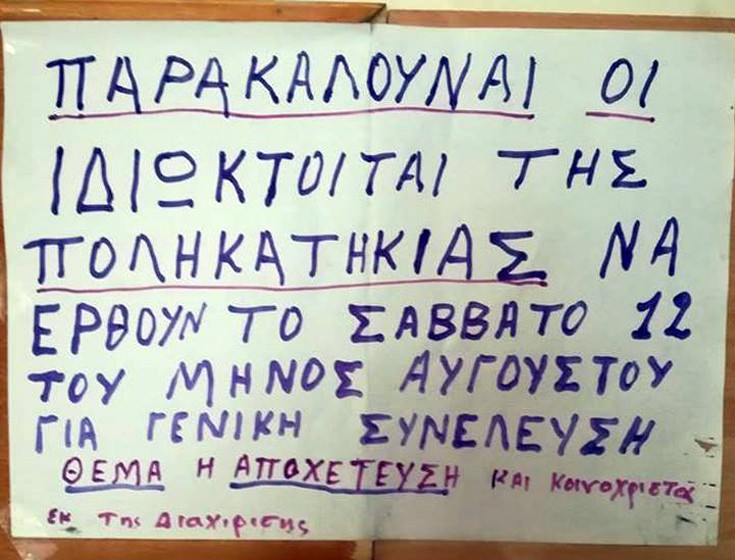 ΠΑΡΑΚΑΛΟΥΝΑΙ ΟΙ
ΙΔΙΩΚΤΟΙΤΑΙ ΤΗΣ
ΠΟΛΗΚΑΤΗΚΙΑΣ ΝΑ
ΕΡΘΟΥΝ ΤΟ ΣΑΒΒΑΤΟ 12
ΤΟΥ ΜΗΝΟΣ ΑΥΓΟΥΣΤΟΥ
ΓΙΑ ΓΕΝΙΚΗ ΣΥΝΕΛΕΥΣΗ
ΘΕΜΑ Η ΑΠΟΧΕΤΕΥΣΗ ΚΑΙ Κοινοχριστα
Εκ Της Διαχιρισης